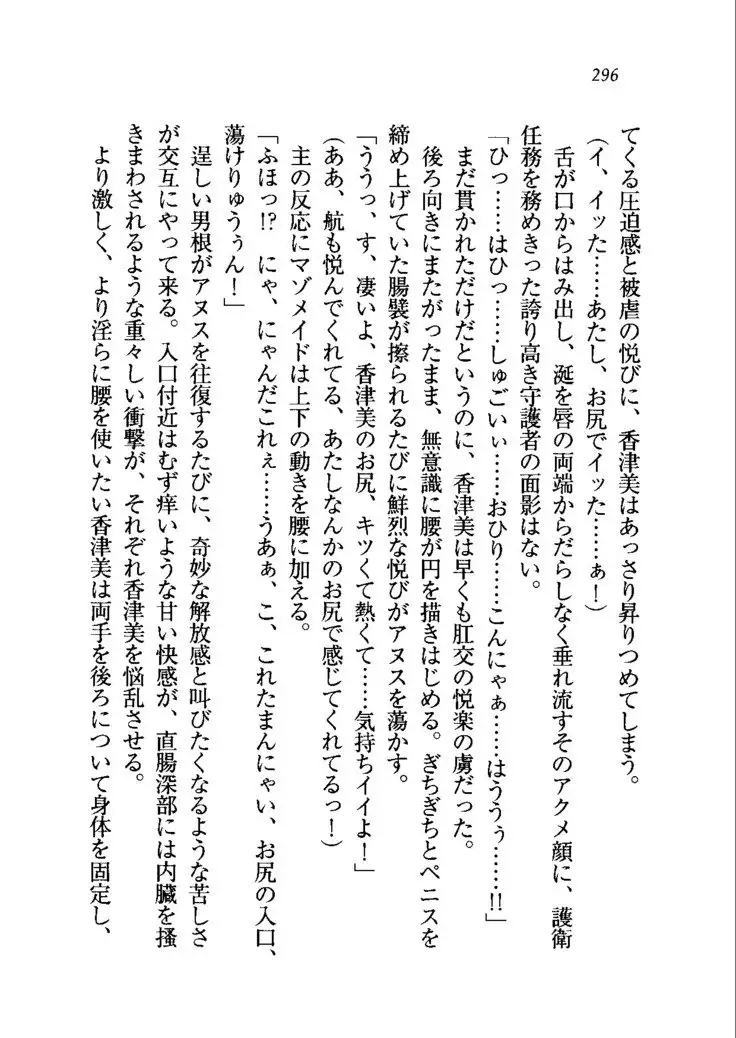 296
てくる圧迫感と被虐の悦びに、香津美はあっさり昇りつめてしまう。
(イ、イッた……あたし、お尻でイッた……ぁ！)
舌が口からはみ出し、涎を唇の両端からだらしなく垂れ流すそのアクメ顔に、護衛
任務を務めきった誇り高き守護者の面影はない。
「ひっ……はひっ……しゅごいぃ……おひり……こんにゃぁ……はううぅ……!!」
まだ貫かれただけだというのに、香津美は早くも肛交の悦楽の虜だった。
後ろ向きにまたがったまま、無意識に腰が円を描きはじめる。ぎちぎちとペニスを
締め上げていた腸襞が擦られるたびに鮮烈な悦びがアヌスを蕩かす。
「ううっ、す、凄いよ、香津美のお尻、キツくて熱くて……気持ちイイよ！」
(ああ、航も悦んでくれてる、あたしなんかのお尻で感じてくれてるっ！)
主の反応にマゾメイドは上下の動きを腰に加える。
「ふほっ!?　にゃ、にゃんだこれぇ……うあぁ、こ、これたまんにゃい、お尻の入口、
蕩けりゅうぅん！」
逞しい男根がアヌスを往復するたびに、奇妙な解放感と叫びたくなるような苦しさ
が交互にやって来る。入口付近はむず痒いような甘い快感が、直腸深部には内臓を掻
きまわされるような重々しい衝撃が、それぞれ香津美を悩乱させる。
より激しく、より淫らに腰を使いたい香津美は両手を後ろについて身体を固定し、